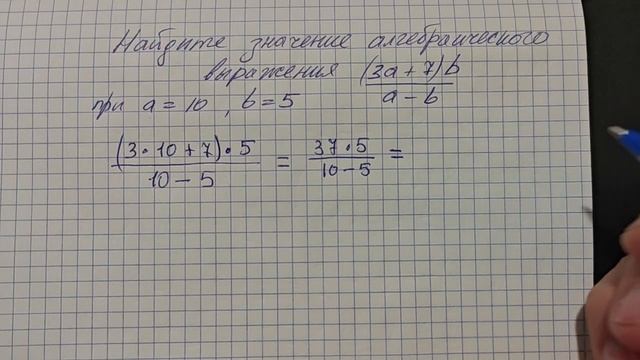 Найдите значение алгебраического
выражения (3a + 7)b / a - b
при a = 10, b = 5
(3 · 10 + 7) · 5 / 10 - 5 = 37 · 5 / 10 - 5 =